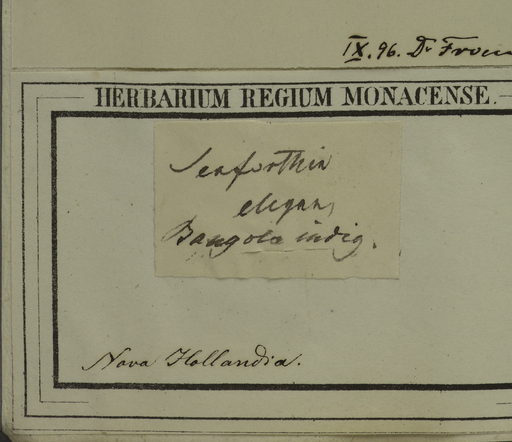 IX. 96. Dr From
HERBARIUM REGIUM MONACENSE.
Seaforthia
elegans
Bangola indig.
Nova Hollandia.